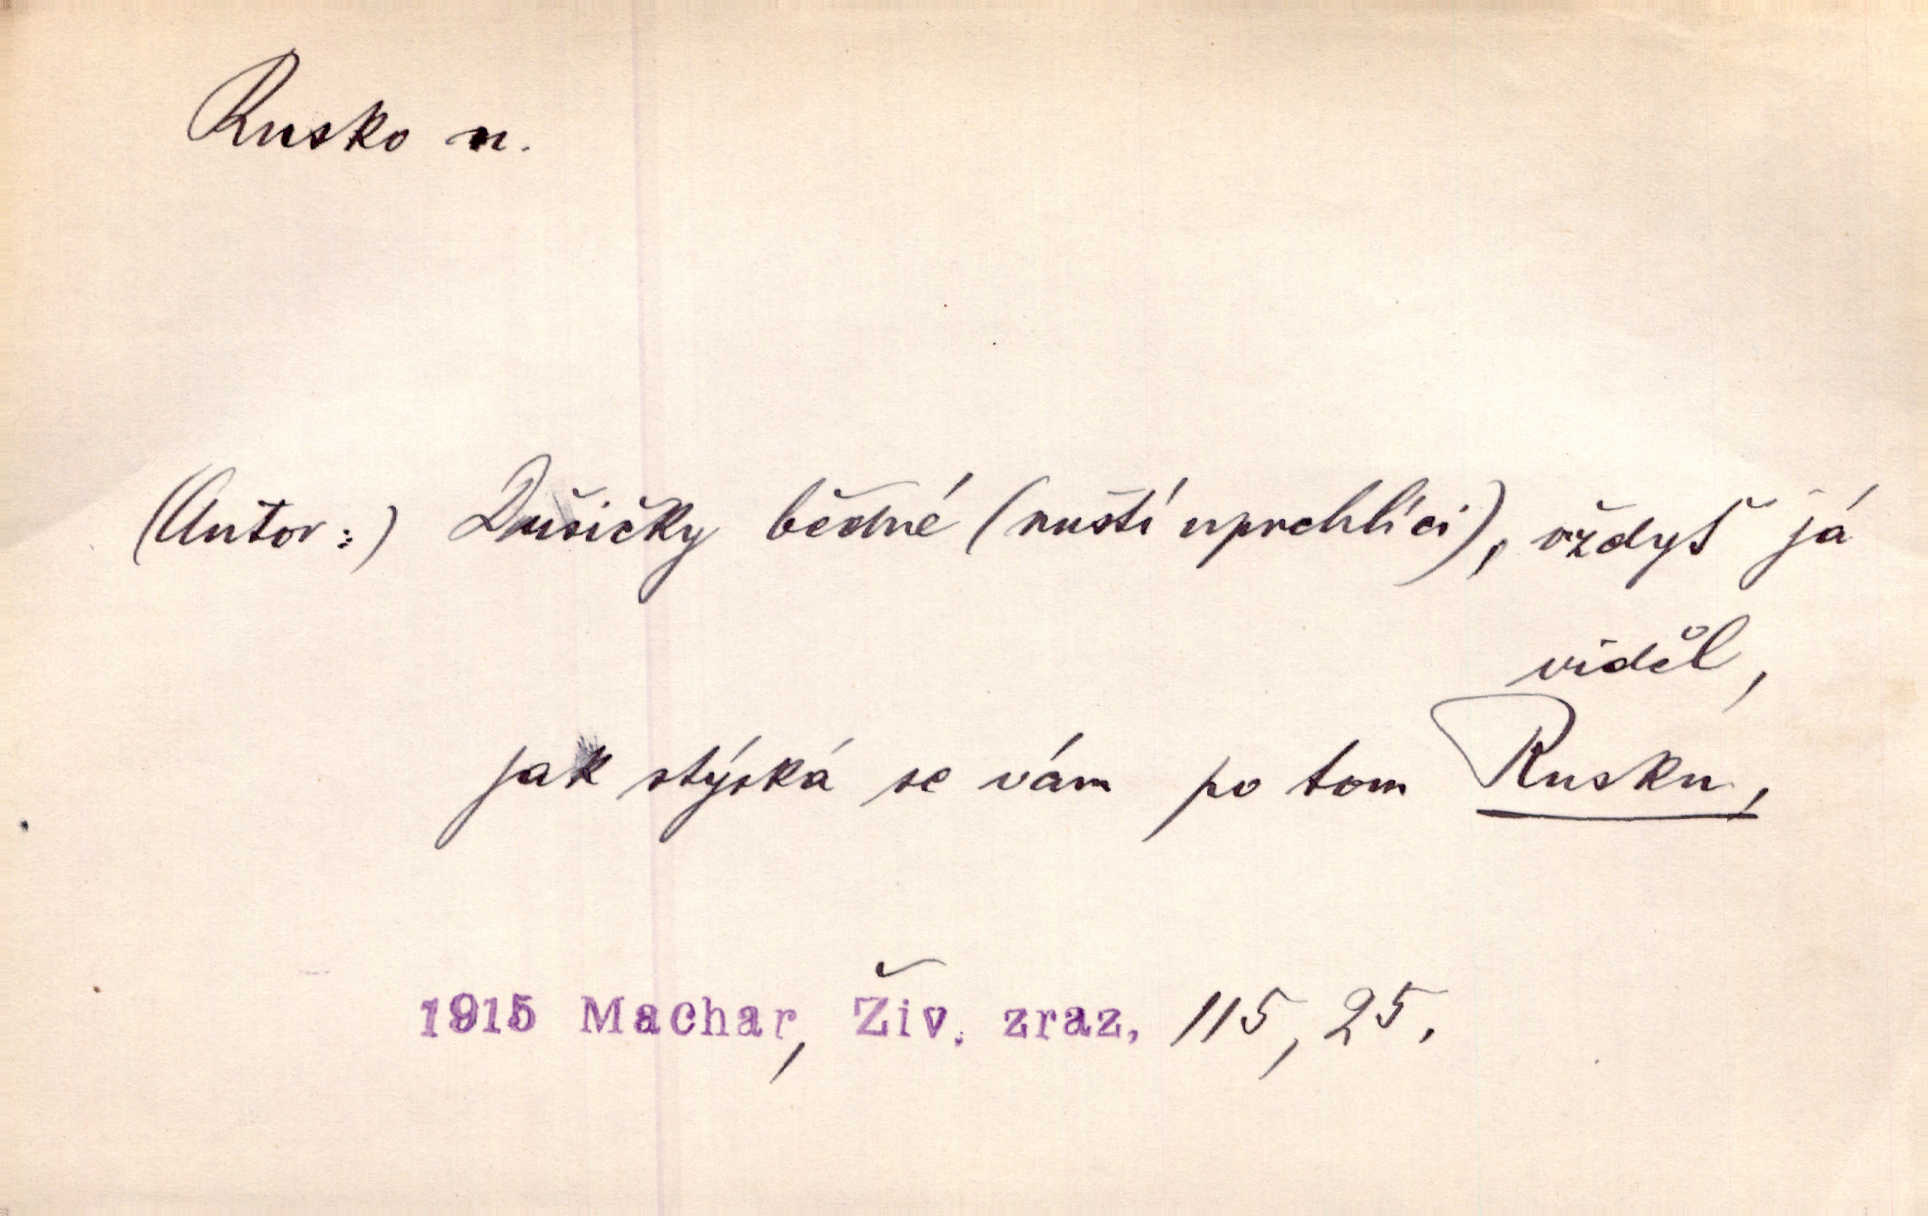 Rusko n.
(Autor:) Dušičky bědné (ruští uprchlíci), vždyť já
viděl,
jak stýská se vám po tom Rusku,
1915 Machar, Živ. zraz. 115, 25.